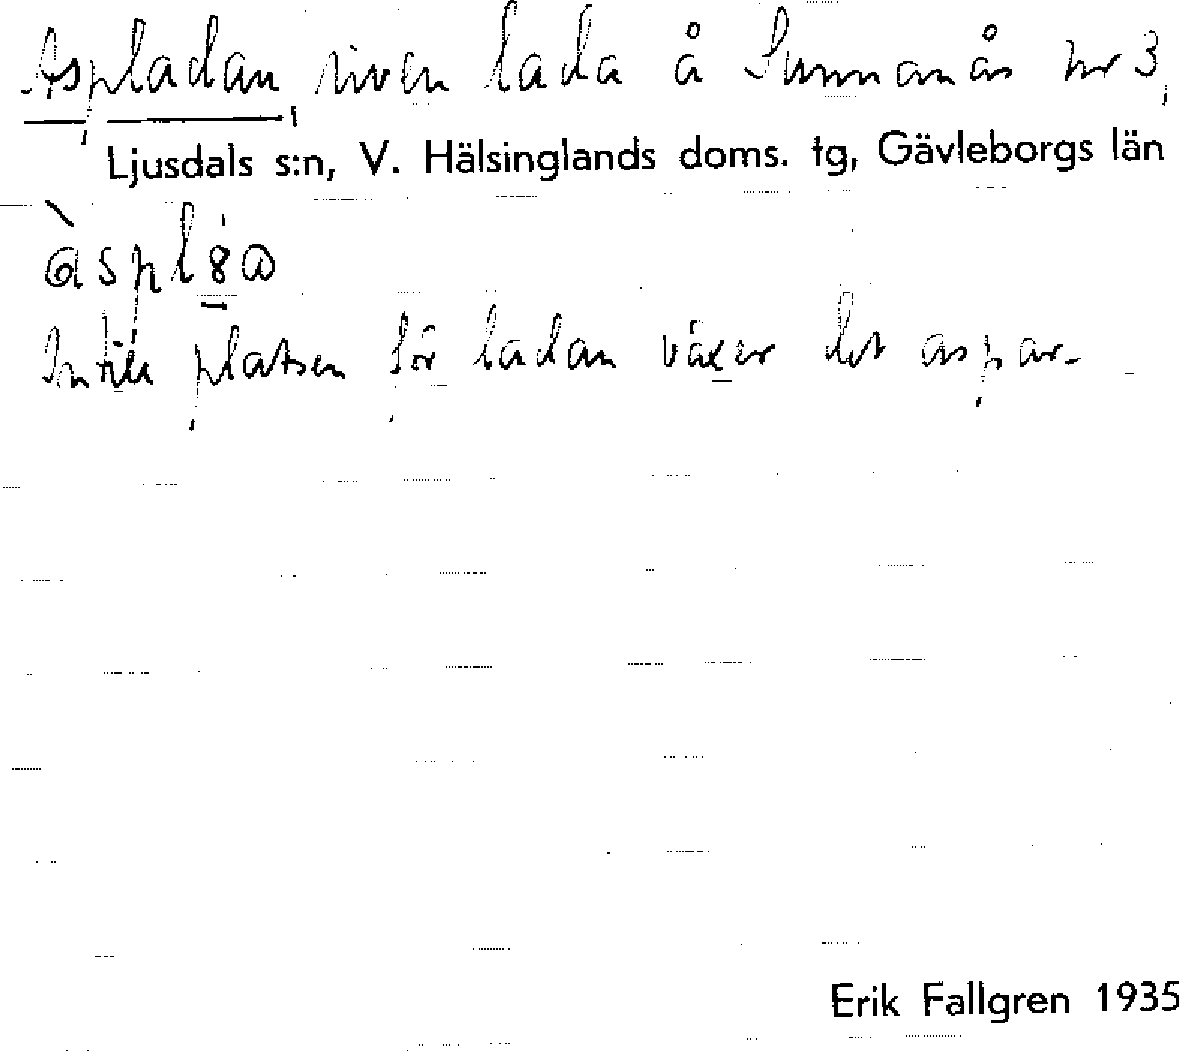 Aspladan, riven lada å Sunnanås nr 3,
Ljusdals s:n, V. Hälsinglands doms. tg, Gävleborgs län
Intill platsen för ladan växer det aspar.
Erik Fallgren 1935